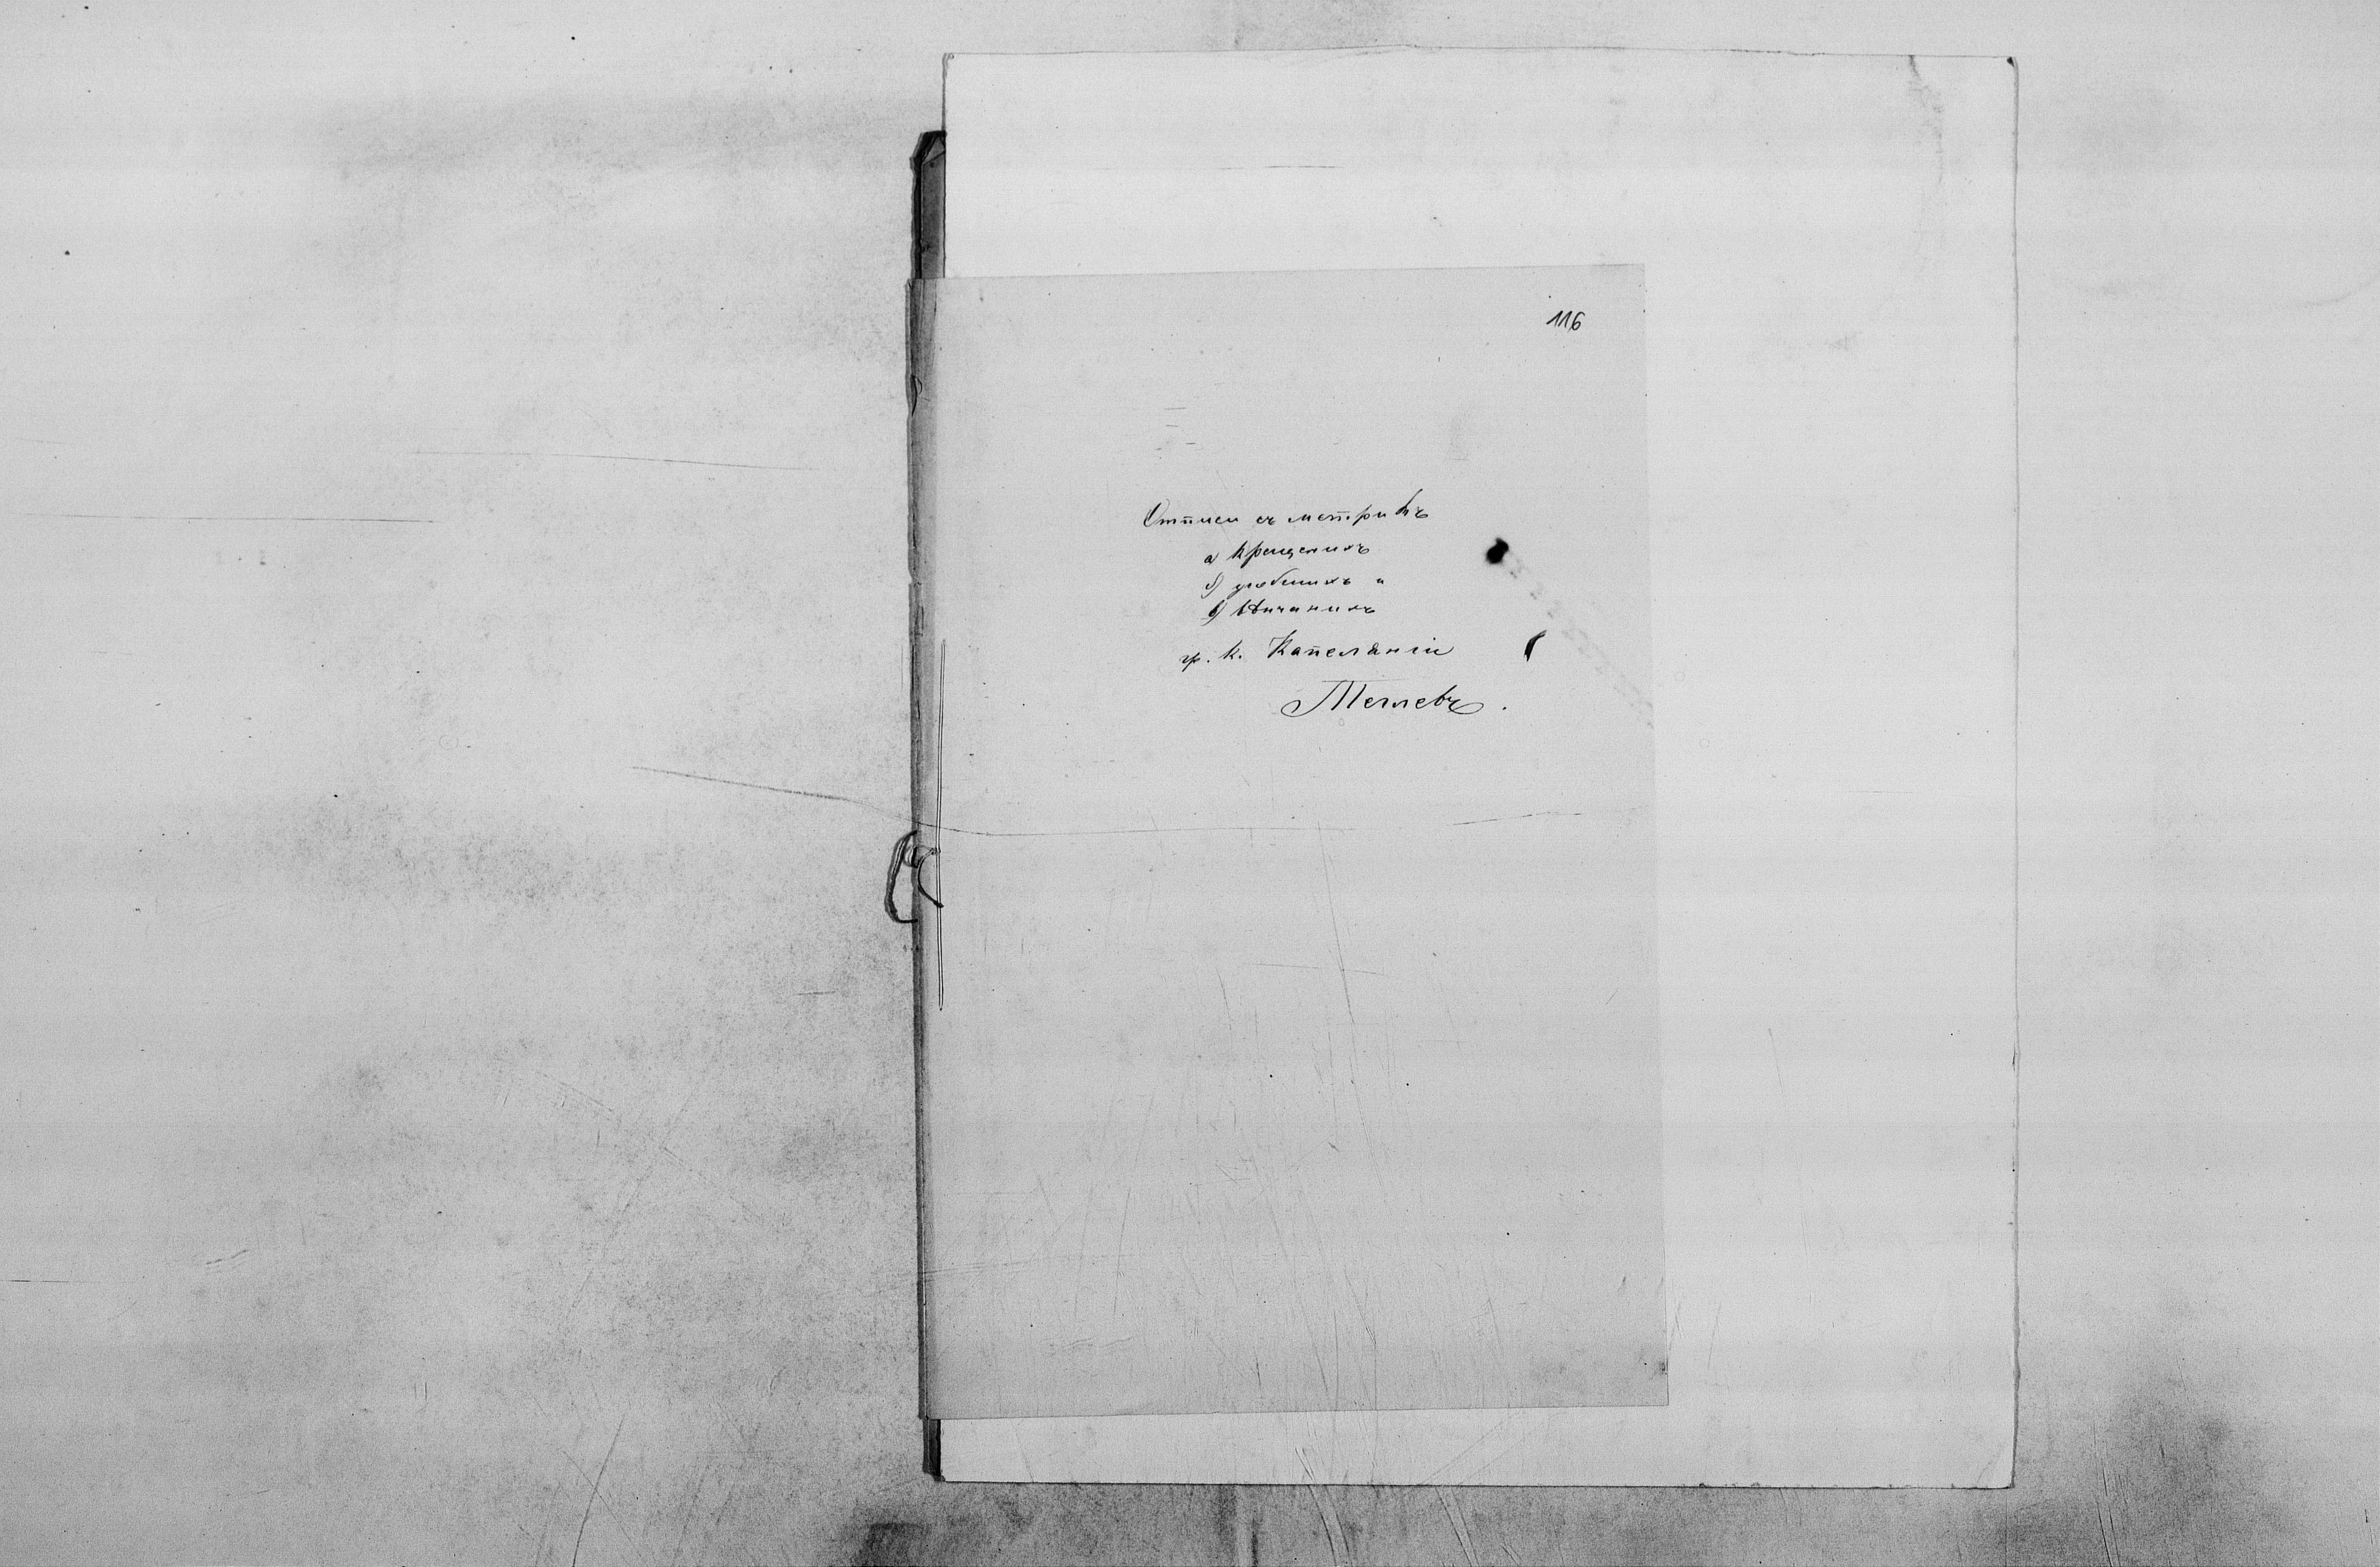 116
Отписи съ метрикъ
а) крещенихъ
б) умершихъ и
в) вѣнчанихъ
гр. к. Капеланіи
Теглевъ.